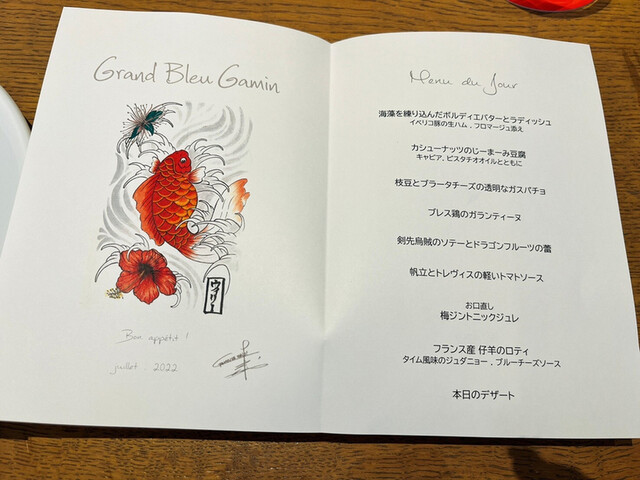 Grand Bleu Gamin
ウィリー
Bon appétit !
juillet . 2022
Menu du Jour
海藻を練り込んだボルディエバターとラディッシュ
イベリコ豚の生ハム , フロマージュ添え
カシューナッツのじーまーみ豆腐
キャビア, ピスタチオオイルとともに
枝豆とブラータチーズの透明なガスパチョ
ブレス鶏のガランティーヌ
剣先烏賊のソテーとドラゴンフルーツの蕾
帆立とトレヴィスの軽いトマトソース
お口直し
梅ジントニックジュレ
フランス産 仔羊のロティ
タイム風味のジュダニョー , ブルーチーズソース
本日のデザート